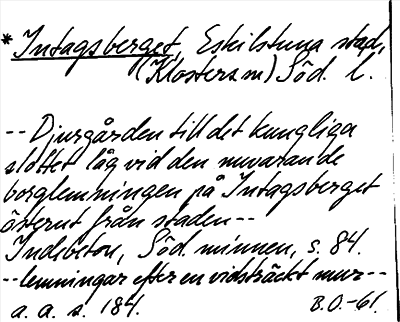 *Intagsberget, Eskilstuna stad,
(Klosters sn) Söd. l.
-- Djurgården till det kungliga
slottet låg vid den nuvarande
borglemningen på Intagsberget
österut från staden --
Indebetou, Söd. minnen, s. 84.
-- lemningar efter en vidsträckt mur --
a. a. s. 184. B.O.-61.